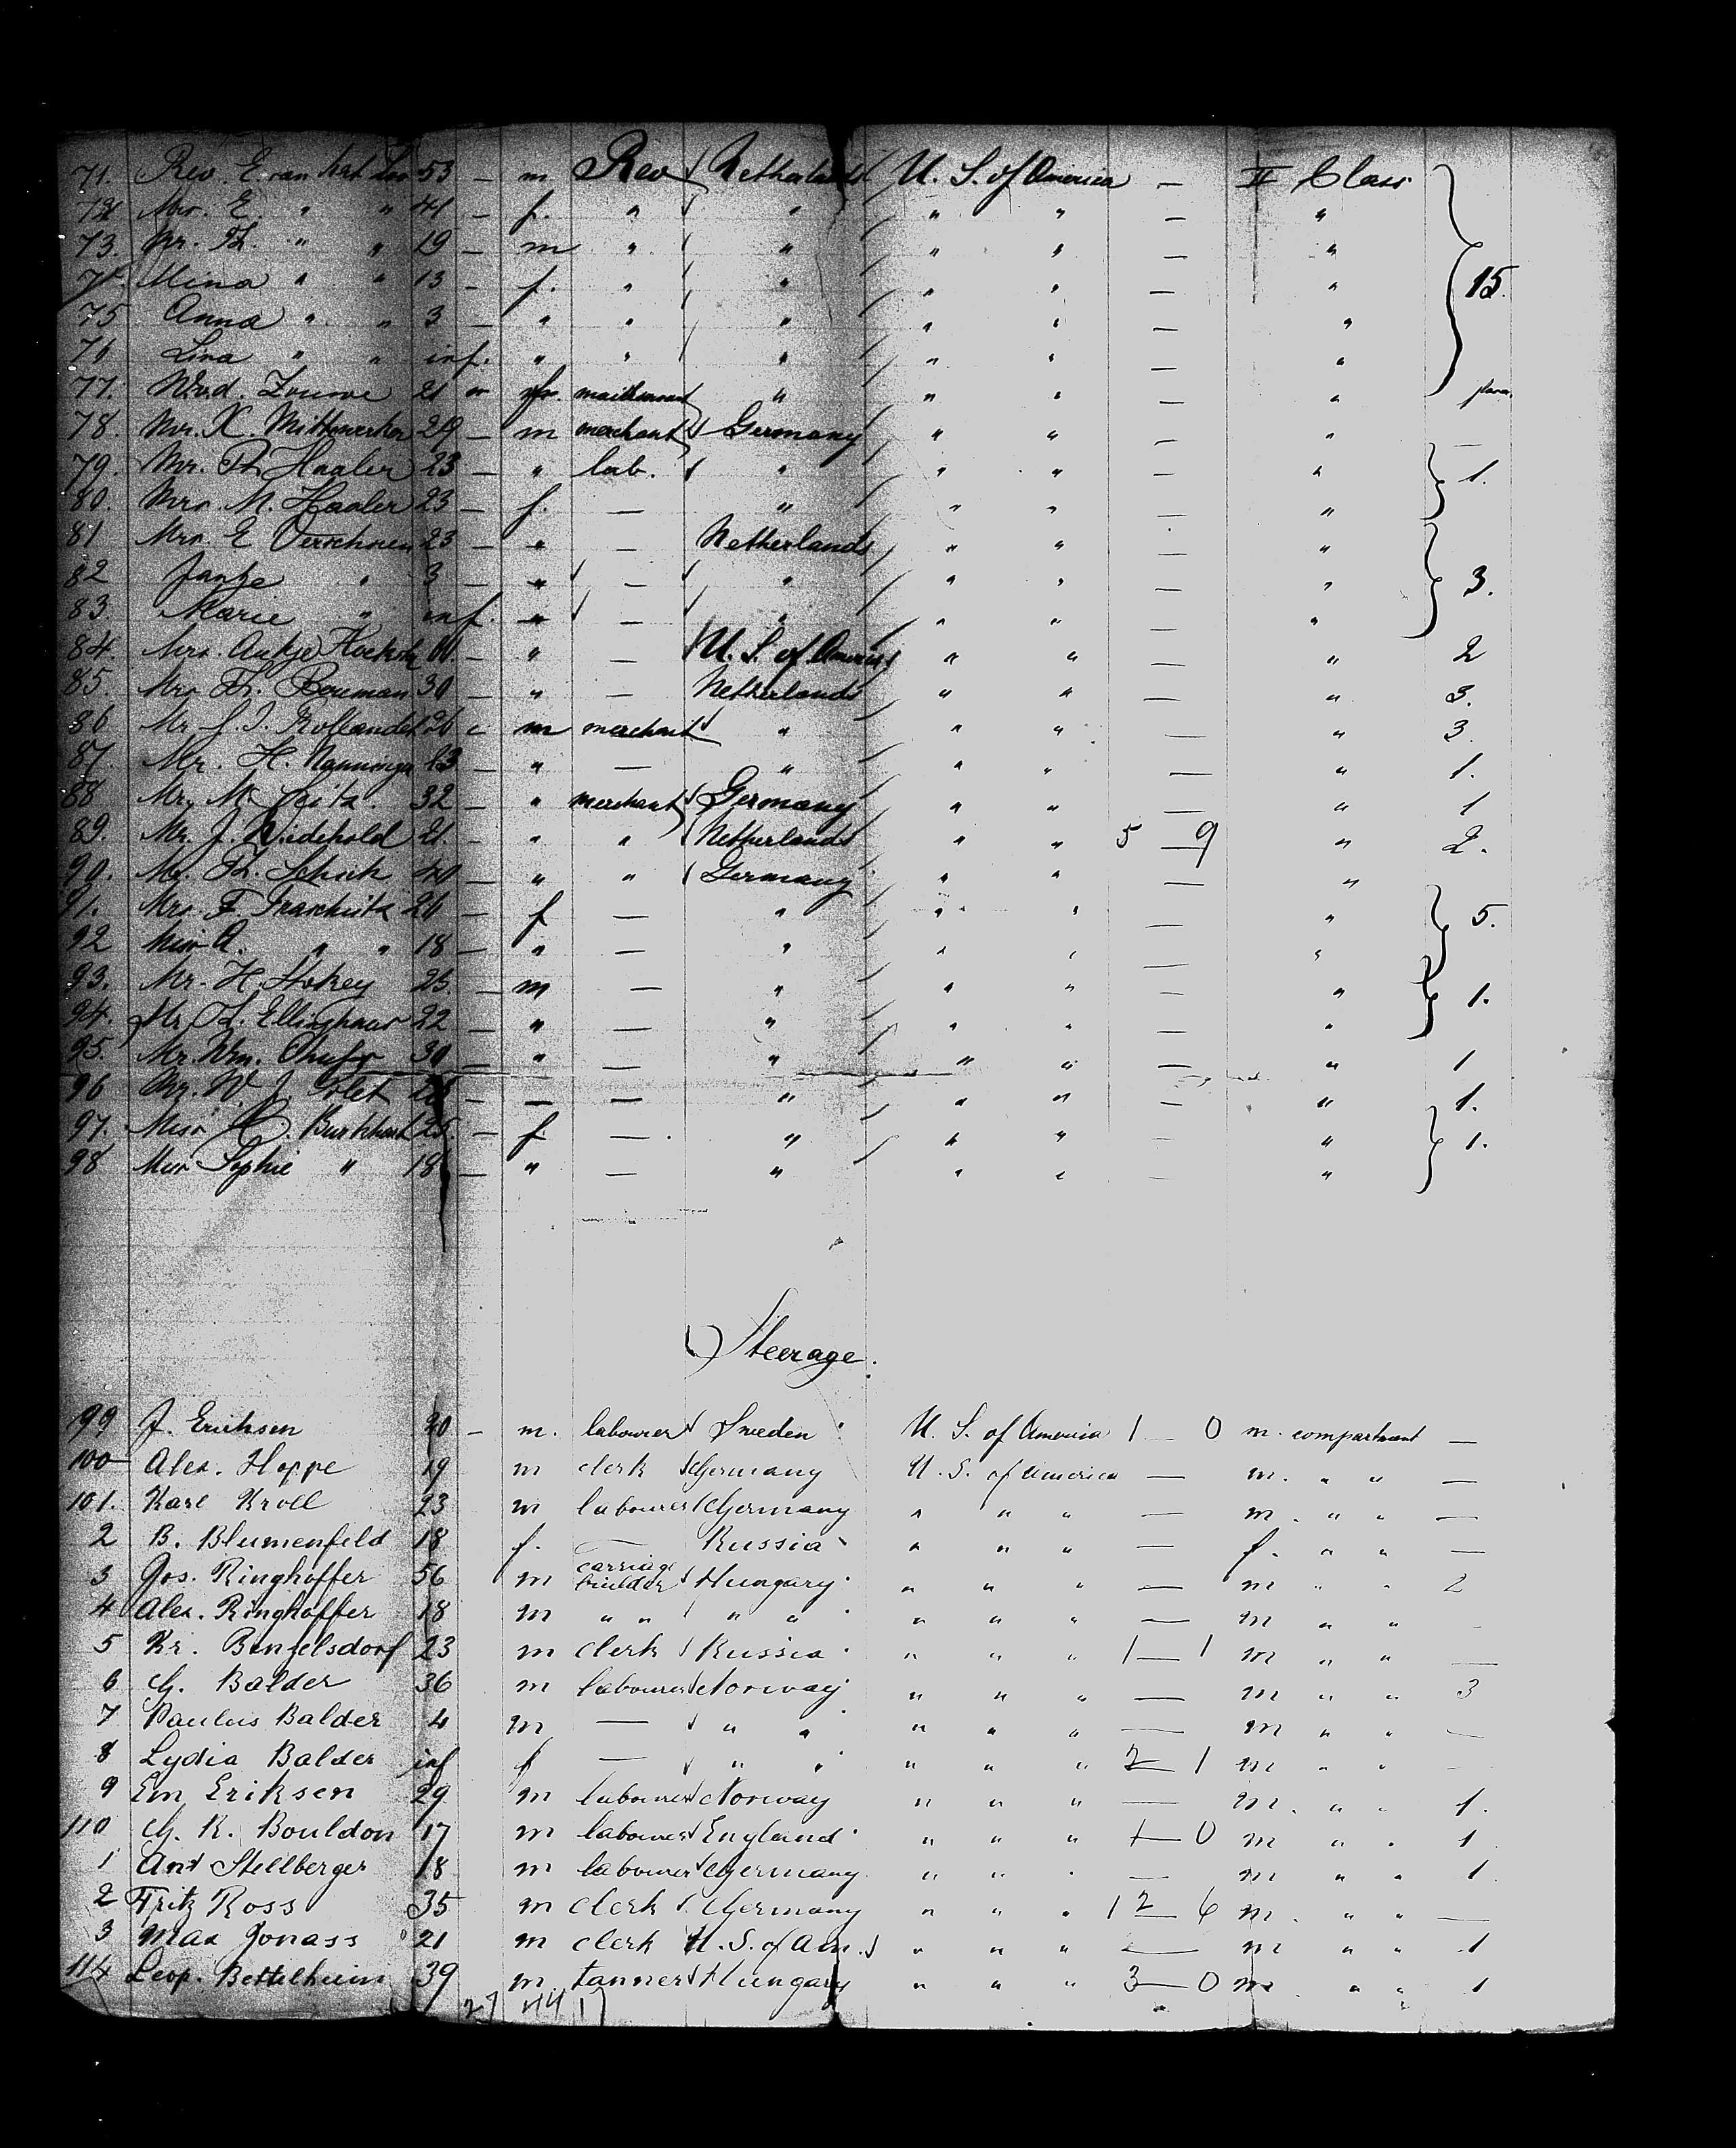 71. Rev. E. van het Loo 53 — m Rev Netherland U. S. of America — II Class
72 Mrs. E. " " 41 — f. " " " " — "
73. Mr. Th. " " 19 — m " " " " — " 15.
74 Mina " " 13 — f. " " " " — "
75 Anna " " 3 — " " " " " — "
76 Lina " " inf. " " " " " — "
77. Wed. Zouwe 21 " " " " — "
78. Mr. K. Mittewerker 29 — m merchant Germany " " — " —
79. Mr. Th Haaler 23 — " lab. " " " — " 1.
80. Mrs. M. Haaler 23 — f. — " " " — "
81 Mrs. E Verschuren 23 — " — Netherlands " " — "
82 Jantje " 3 — " — " " " — " 3.
83. Marie " inf. " — " " " — "
84. Mrs. Antje — " — U. S. of America " " — " 2
85. Mrs Th. Bouman 30 — " — Netherlands " " — " 3.
86 Mr J. J. 26 m merchant " " " — " 3.
87. Mr. H. Nannenga — " — " " " — " 1.
88 Mr. M. Seitz. 32 — " merchant Germany " " — " 1
89. Mr. J. Wiedehold 21. — " " Netherlands " " 5 — 9 " 2.
90. Mr. Th. Schick 40 — " " Germany " " — "
91. Mrs F. Traschütz 26 — f — " " " — " 5.
92 Miss A. " " 18 — " — " " " — "
93. Mr. H. Stokey 25. — m — " " " — " 1.
94. Mr. Th. Ellinghaus 22 — " — " " " — "
95. Mr. Wm. 30 — " — " " " — " 1
96 Mr. W. J. Polet — — — " " " — " 1.
97. Miss C. Burkhart 25. — f — " " " — " 1.
98 Miss Sophie " 18 — " — " " " — "
Steerage.
99 J. Erichsen 40 — m. labourer Sweden U. S. of America 1 — 0 m. compartment —
100 Alex. Hoppe 19 m clerk Germany U. S. of America — m. " " —
101. Karl Kroll 23 m labourer Germany " " " — m. " " —
2 B. Blumenfeld 18 f. — Russia " " " — f. " " —
3 Jos. Ringhoffer 56 m carriage builder Hungary " " " — m " " 2
4 Alex. Ringhoffer 18 m " " " " " " " — m " "
5 Kr. Benzelsdorf 23 m clerk Russia " " " 1 — 1 m " " —
6 G. Balder 36 m labourer Norway " " " — m " " 3
7 Paulus Balder 4 m — " " " " " — m " " —
8 Lydia Balder inf f — " " " " " 2 — 1 m " " —
9 Em Eriksen 29 m labourer Norway " " " — m. " " 1.
110 G. R. Bouldon 17 m labourer England " " " 1 — 0 m " " 1
1 Ant Stellberger 18 m labourer Germany " " " — m " " 1.
2 Fritz Ross 35 m clerk Germany " " " 12 — 6 m. " " —
3 Max Jonass 21 m clerk U. S. of Am. " " " — m " " 1
114 Leop. Bettelheim 39 m tanner Hungary " " " 3 — 0 m. " " 1
27 44 17